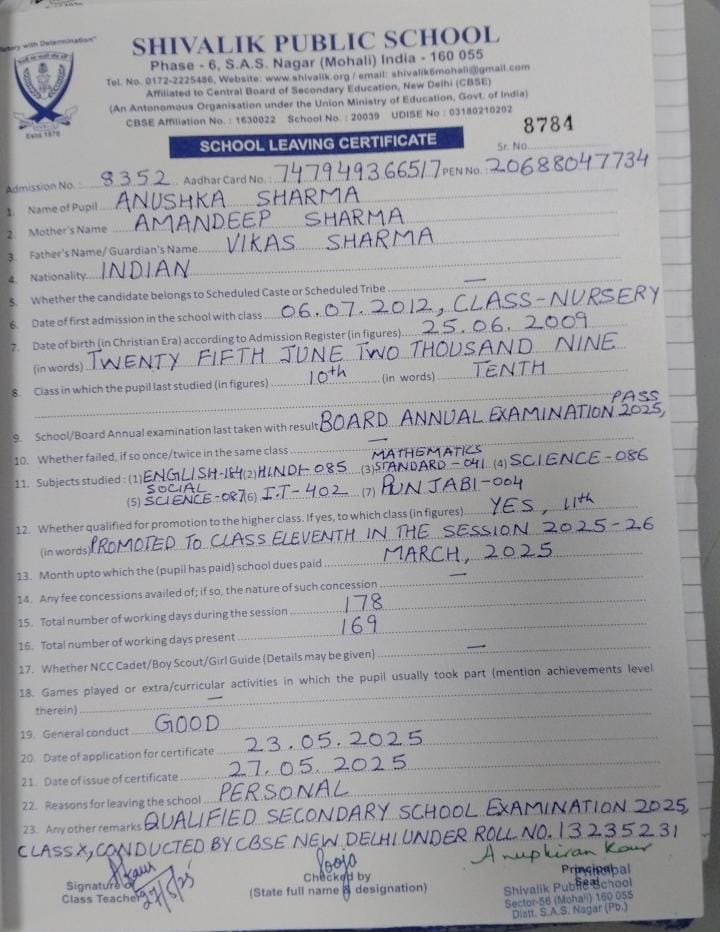 "Victory with Determination"
Estd. 1970
SHIVALIK PUBLIC SCHOOL
Phase - 6, S.A.S. Nagar (Mohali) India - 160 055
Tel. No. 0172-2225486, Website: www.shivalik.org / email: shivalik6mohali@gmail.com
Affiliated to Central Board of Secondary Education, New Delhi (CBSE)
(An Antonomous Organisation under the Union Ministry of Education, Govt. of India)
CBSE Affiliation No. : 1630022 School No. : 20039 UDISE No : 03180210202
SCHOOL LEAVING CERTIFICATE
Sr. No. 8784
Admission No. : 8352 Aadhar Card No. : 747949366517 PEN No. : 20688047734
1. Name of Pupil ANUSHKA SHARMA
2. Mother's Name AMANDEEP SHARMA
3. Father's Name/ Guardian's Name VIKAS SHARMA
4. Nationality INDIAN
5. Whether the candidate belongs to Scheduled Caste or Scheduled Tribe —
6. Date of first admission in the school with class 06.07.2012, CLASS-NURSERY
7. Date of birth (in Christian Era) according to Admission Register (in figures) 25.06.2009
(in words) TWENTY FIFTH JUNE TWO THOUSAND NINE
8. Class in which the pupil last studied (in figures) 10th (in words) TENTH
9. School/Board Annual examination last taken with result BOARD ANNUAL EXAMINATION 2025, PASS
10. Whether failed, if so once/twice in the same class —
11. Subjects studied : (1) ENGLISH-184 (2) HINDI-085 (3) MATHEMATICS STANDARD-041 (4) SCIENCE-086
(5) SOCIAL SCIENCE-087 (6) I.T-402 (7) PUNJABI-004
12. Whether qualified for promotion to the higher class. If yes, to which class (in figures) YES, 11th
(in words) PROMOTED TO CLASS ELEVENTH IN THE SESSION 2025-26
13. Month upto which the (pupil has paid) school dues paid MARCH, 2025
14. Any fee concessions availed of; if so, the nature of such concession —
15. Total number of working days during the session 178
16. Total number of working days present 169
17. Whether NCC Cadet/Boy Scout/Girl Guide (Details may be given) —
18. Games played or extra/curricular activities in which the pupil usually took part (mention achievements level
therein) —
19. General conduct GOOD
20. Date of application for certificate 23.05.2025
21. Date of issue of certificate 27.05.2025
22. Reasons for leaving the school PERSONAL
23. Any other remarks QUALIFIED SECONDARY SCHOOL EXAMINATION 2025,
CLASS X, CONDUCTED BY CBSE NEW DELHI UNDER ROLL NO. 13235231
Kaur 27/5/25
Pooja
Anupkiran Kaur
Signature of
Class Teacher
Checked by
(State full name & designation)
Principal
Seal
Principal
Shivalik Public School
Sector-56 (Mohali) 160 055
Distt. S.A.S. Nagar (Pb.)